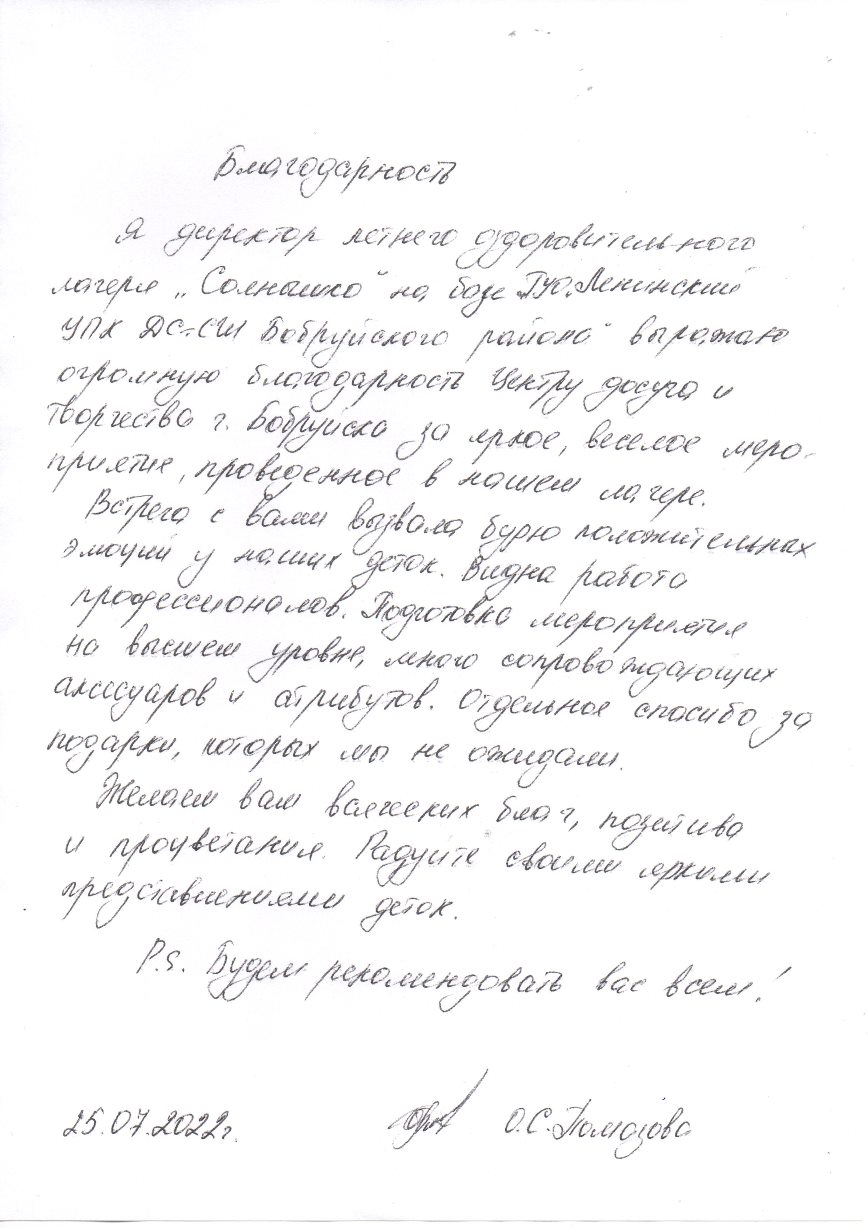 Благодарность
Я директор летнего оздоровительного
лагеря „Солнышко" на базе ГУО „Ленинский
УПК ДС-СШ Бобруйского района" выражаю
огромную благодарность Центру досуга и
творчества г. Бобруйска за яркое, веселое меро-
приятие, проведенное в нашем лагере.
Встреча с вами вызвала бурю положительных
эмоций у наших деток. Видна работа
профессионалов. Подготовка мероприятия
на высшем уровне, много сопровождающих
аксессуаров и атрибутов. Отдельное спасибо за
подарки, которых мы не ожидали.
Желаем вам всяческих благ, позитива
и процветания. Радуйте своими яркими
представлениями деток.
P.S. Будем рекомендовать вас всем!
25.07.2022г. О.С.